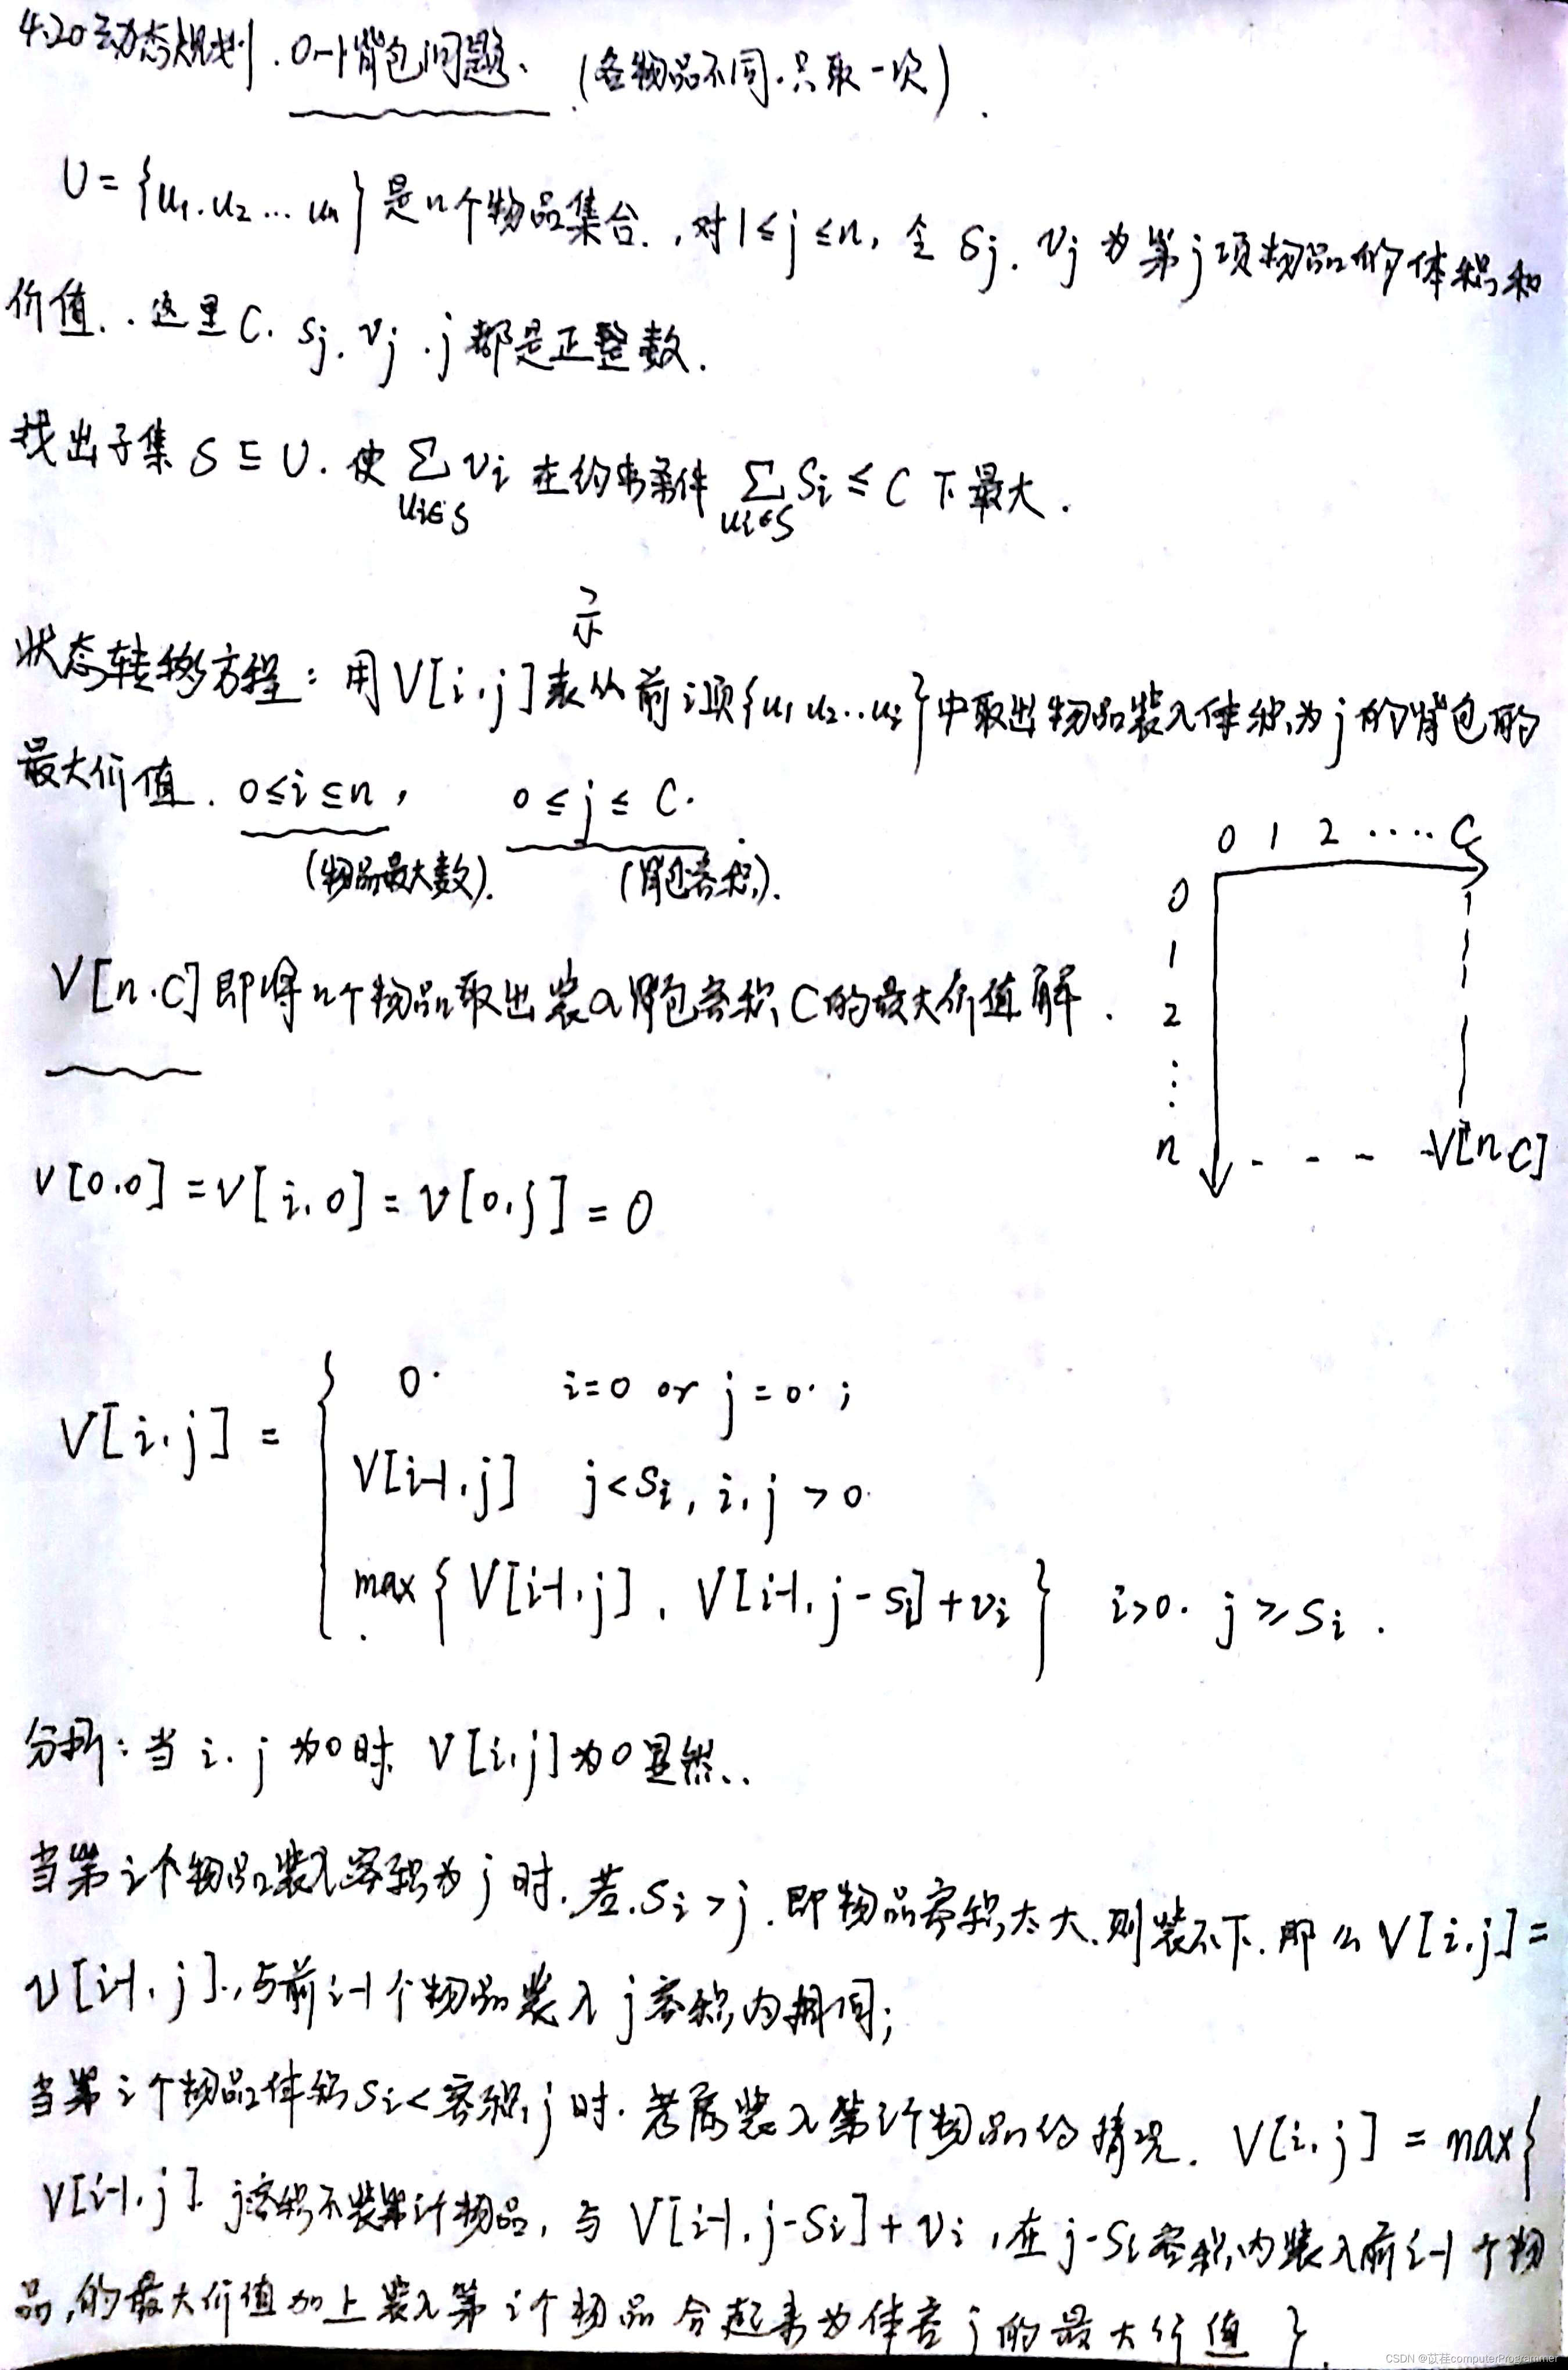 4.20动态规划.0-1背包问题、(各物品不同.只取一次).
U={u₁.u₂...uₙ}是n个物品集合.,对1≤j≤n,令 Sj.vj 为第j项物品的体积和
价值..这里C. sj.vj.j都是正整数.
找出子集S⊆U.使 ∑ vi 在约束条件 ∑ Si≤C下最大.
ui∈S ui∈S
示
状态转移方程:用V[i,j]表从前i项{u₁ u₂..ui}中取出物品装入体积为j的背包的
最大价值. 0≤i≤n, 0≤j≤C.
(物品最大数). (背包容积).
0 1 2 .... C
0
1
V[n.C]即将n个物品取出装入背包容积C的最大价值解.
2
⋮
n - - - -V[n,C]
V[0.0]=V[i,0]=V[0,j]=0
0. i=0 or j=0.;
V[i,j]={ V[i-1,j] j<Si, i,j>0.
max{V[i-1,j],V[i-1,j-Si]+vi} i>0. j≥Si.
分析:当i.j为0时 V[i,j]为0显然..
当第i个物品装入容积为j时.若.Si>j.即物品容积太大.则装不下.那么V[i,j]=
V[i-1,j].,与前i-1个物品装入j容积内相同;
当第i个物品体积Si<容积j时.考虑装入第i个物品的情况. V[i,j]=max{
V[i-1,j] j容积不装第i个物品,与 V[i-1,j-Si]+vi,在j-Si容积内装入前i-1个物
品,的最大价值加上装入第i个物品合起来为体容j的最大价值}.
CSDN @苡荏computerProgrammer